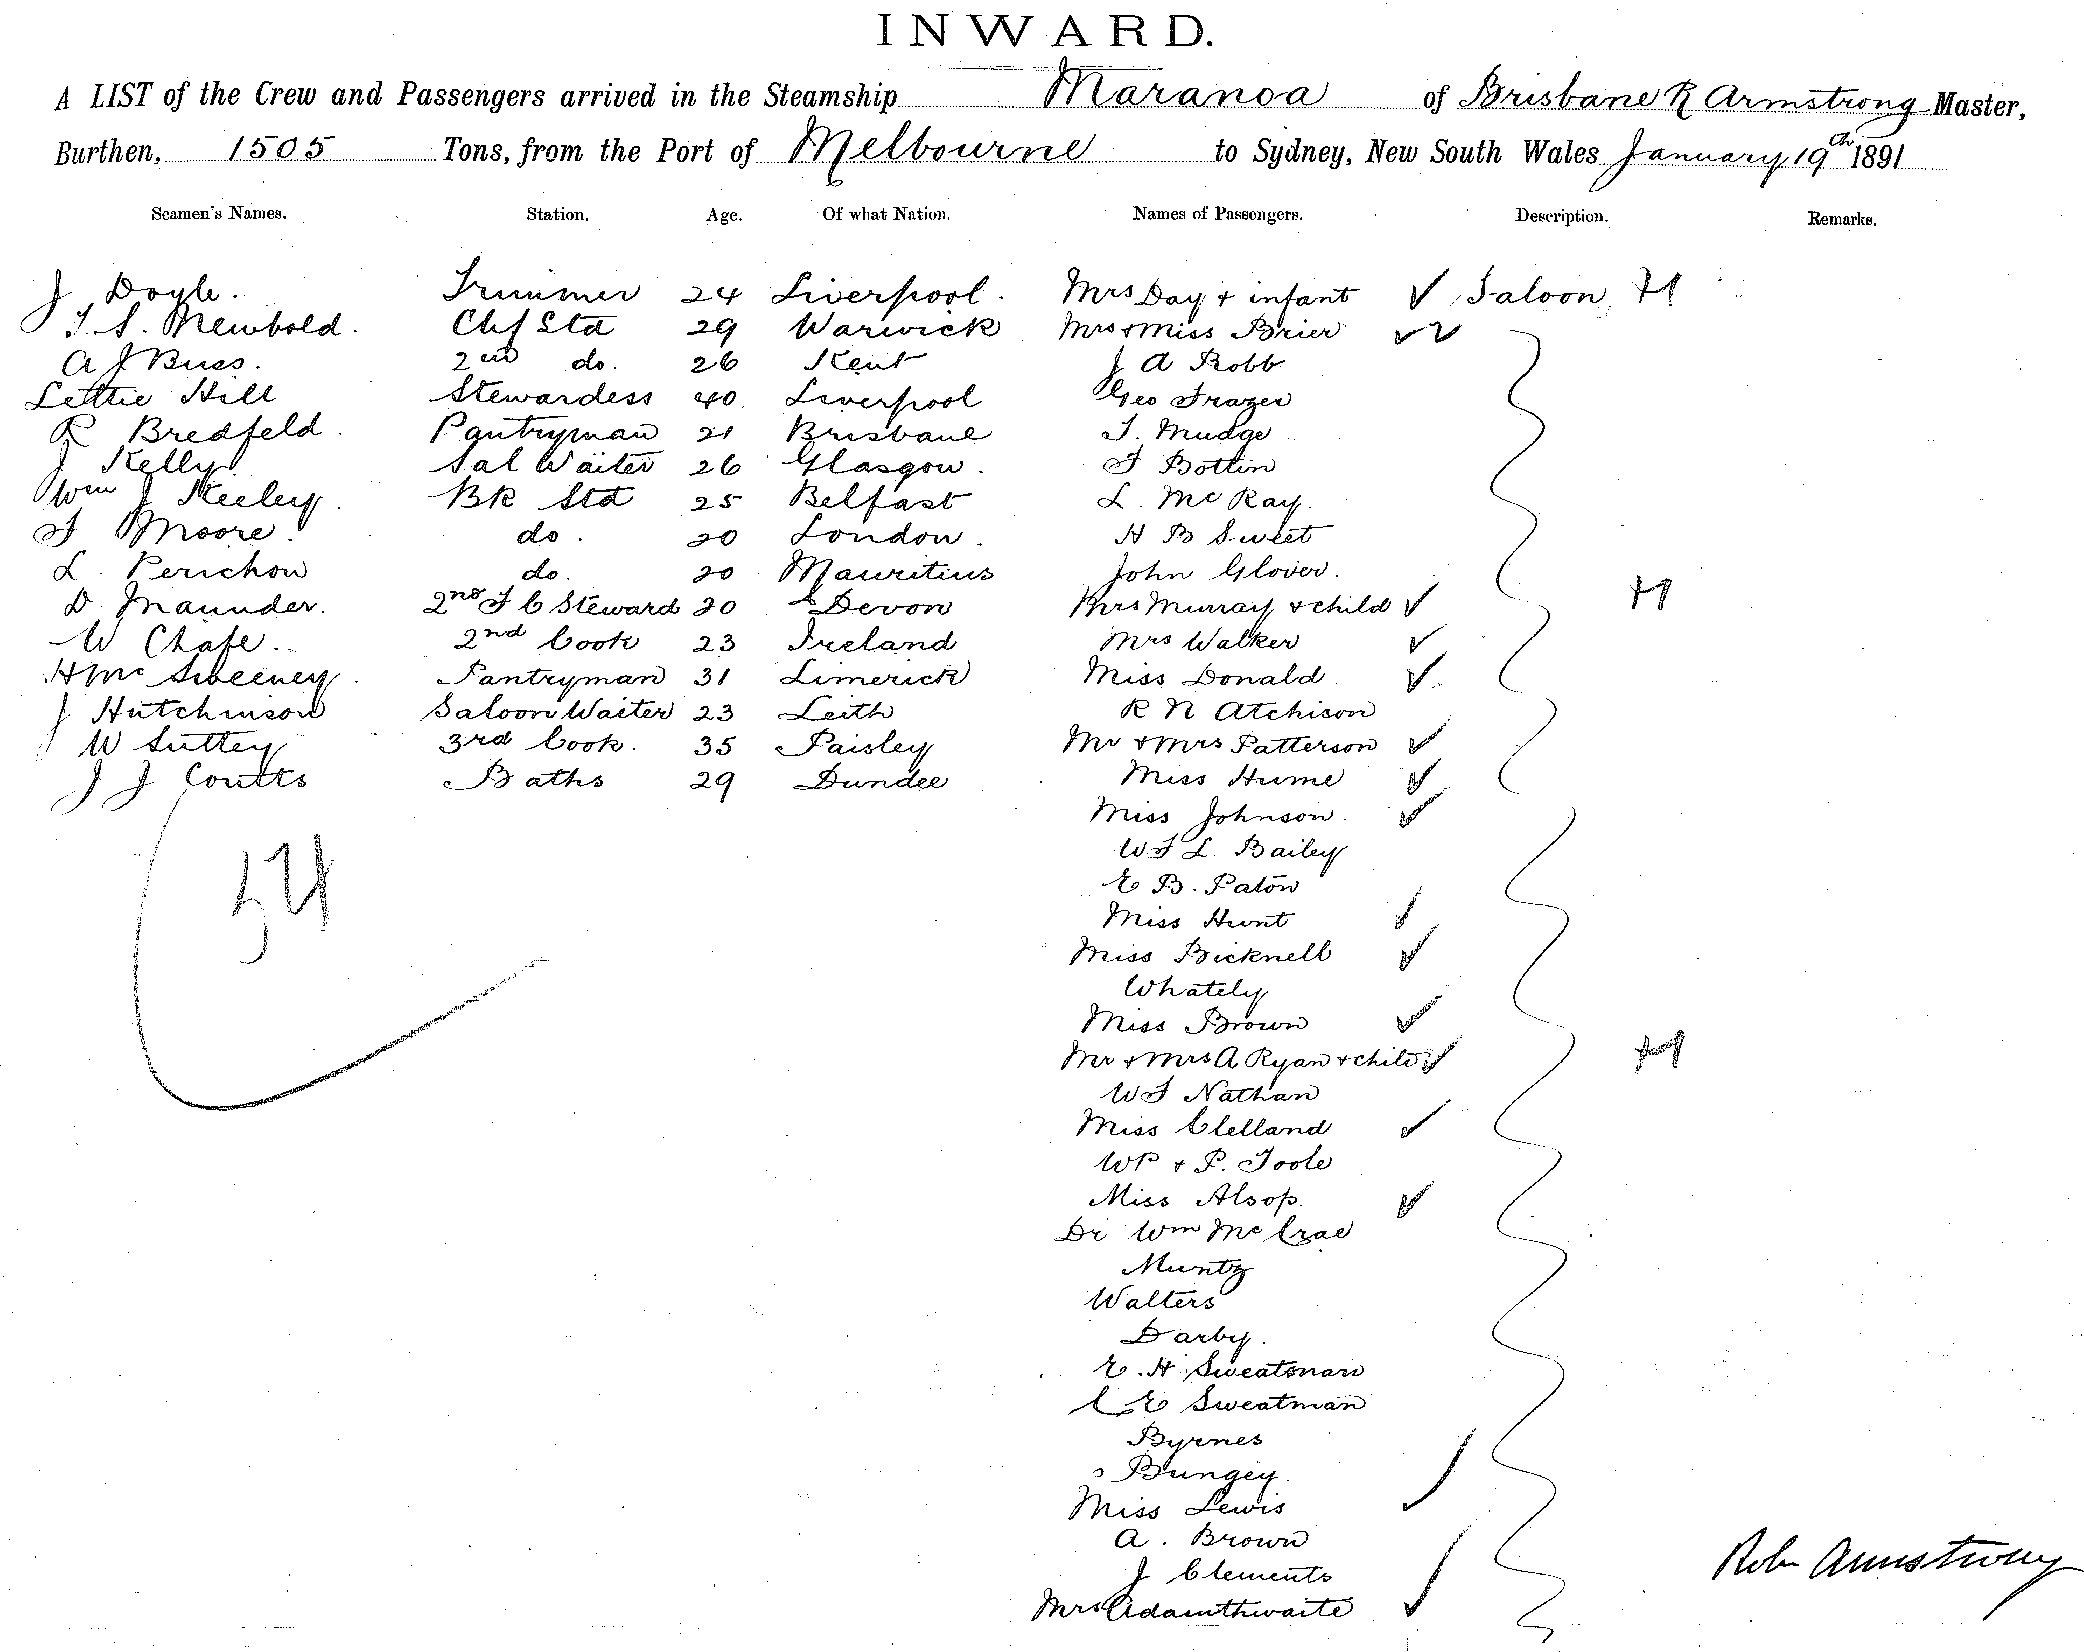 INWARD.
A LIST of the Crew and Passengers arrived in the Steamship Maranoa of Brisbane R Armstrong Master,
Burthen, 1505 Tons, from the Port of Melbourne to Sydney, New South Wales January 19th 1891
Seamen's Names. Station. Age. Of what Nation. Names of Passengers. Description. Remarks.
J Doyle. Trimmer 24 Liverpool. Mrs Day + infant ✓ Saloon
T. S. Newbold. Chf Std 29 Warwick Mrs + Miss Brier ✓✓
A J Buss. 2nd do. 26 Kent J A Robb
Lettie Hill Stewardess 40 Liverpool Geo Frazer
R Bredfeld. Pantryman 21 Brisbane T. Mudge
J Kelly Sal Waiter 26 Glasgow. F Bottin
Wm J Keeley. Bk Std 25 Belfast L. McRay.
F Moore. do. 20 London. H B Sweet
L. Perichon do. 20 Mauritius John Glover.
D. Maunder. 2nd F C Steward 20 Devon Mrs Murray + child ✓
W Chafe. 2nd Cook 23 Ireland Mrs Walker ✓
H Mc Sweeney. Pantryman 31 Limerick Miss Donald ✓
J Hutchinson Saloon Waiter 23 Leith R N Atchison
W Suttey 3rd Cook. 35 Paisley Mr + Mrs Patterson ✓
J J Coutts Baths 29 Dundee Miss Hume ✓
Miss Johnson. ✓
W F L. Bailey
54 E B. Paton
Miss Hunt ✓
Miss Bicknell ✓
Whately
Miss Brown ✓
Mr + Mrs A Ryan + child ✓
W F Nathan
Miss Clelland ✓
WP + P. Toole
Miss Alsop. ✓
Dr Wm McCrae
Muntz
Walters
Darby.
E. H. Sweatman
C E Sweatman
Byrnes
Bungey.
Miss Lewis ✓
A. Brown
J Clements
Mrs Adamthwaite ✓
Robt Armstrong